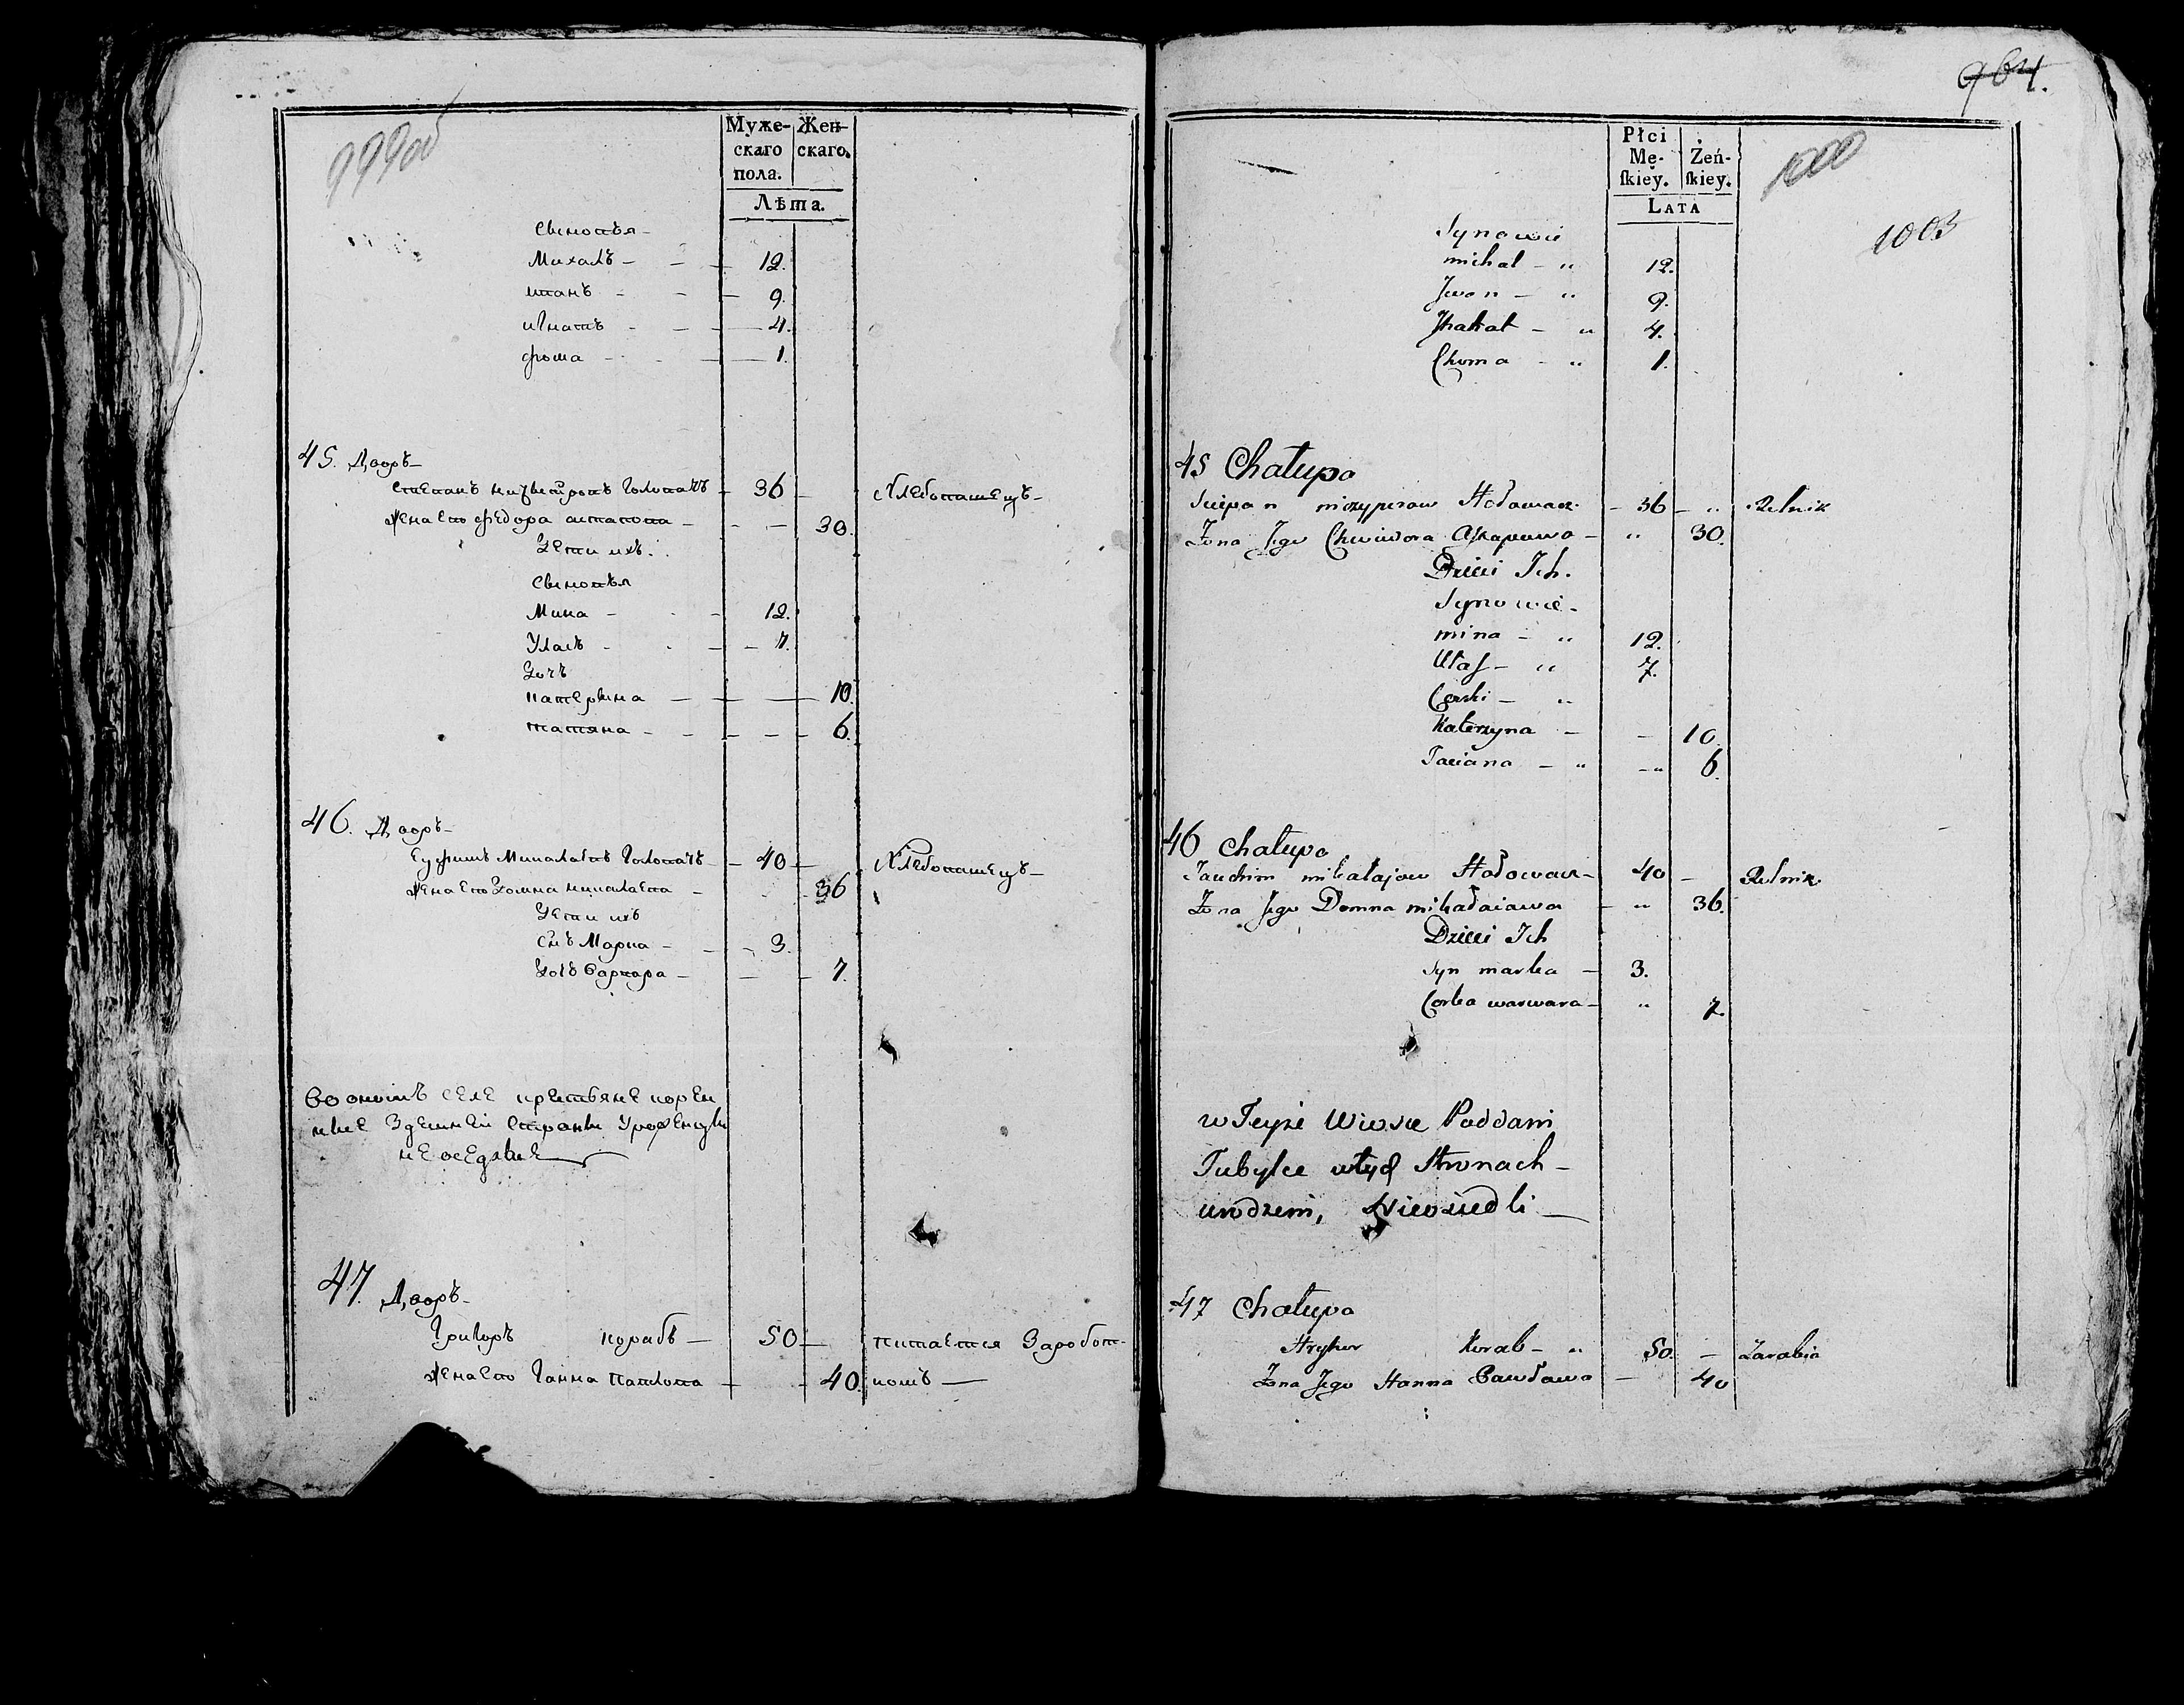 999об
Муже-
скаго
пола.
Жен-
скаго.
Лѣта.
Сыновья -
Михалъ - - - 12.
иванъ - - - 9.
игнатъ - - - 4.
фома - - - 1.
45. Дворъ -
Степанъ Головачъ - 36 - Хлебопашецъ -
жена его федора астапова - - - 30.
Дети ихъ.
Сыновья
Мина - - - 12.
Уласъ - - - 7.
Дочь
катерына - - - 10.
татяна - - - 6.
46. Дворъ -
Еуфимъ Миколаевъ Головачъ - 40 - Хлебопашецъ -
жена его Домна миколаева - 36
Дети ихъ
Сынъ Марка - - 3.
Дочь Варвара - - - 7.
Во ономъ селе крестьяне корен
ные Здешней Страны Уроженцы
не оседлые
47. Дворъ -
Григоръ корабъ - 50 - питается Заробот-
жена его Ганна Павлова - - 40. комъ -
964.
Płci
Mę-
skiey.
Żeń-
skiey.
LATA
1000
1003
Synowie
michał - " 12.
Jwan - " 9.
Jhanat - " 4.
Choma - " 1.
45 Chałupa
Sciepan Hołowacz - 36 - " Rolnik
Żona Jego Chwiedora Astapowa - " 30.
Dzieci Jch.
Synowie -
mina - " 12.
Ułas - " 7.
Corki - "
Katerzyna - - 10.
Taciana - " - " 6.
46 Chałupa
Jauchim mikałajow Hołowacz - 40 - Rolnik
Żona Jego Domna mikałaiawa - " 36.
Dzieci Jch
Syn marka - 3.
Corka warwara - " 7.
w Teyże Wiosce Poddani
Tubylce w tych Stronach -
urodzeni, Nieosiedli -
47 Chałupa
Hryhor Korab - " 50. - Zarabia
Żona Jego Hanna Pawława - 40